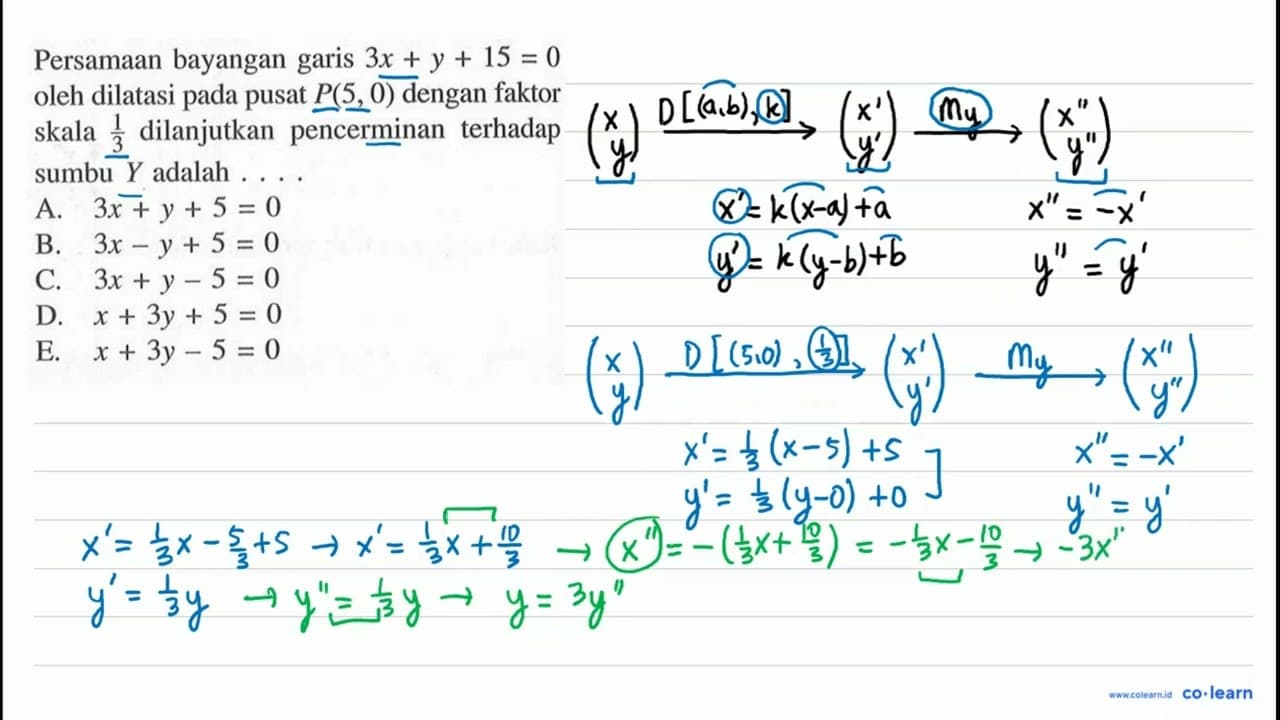 Persamaan bayangan garis 3x + y + 15 = 0
oleh dilatasi pada pusat P(5, 0) dengan faktor
skala 1/3 dilanjutkan pencerminan terhadap
sumbu Y adalah . . . .
A. 3x + y + 5 = 0
B. 3x – y + 5 = 0
C. 3x + y – 5 = 0
D. x + 3y + 5 = 0
E. x + 3y – 5 = 0
(x y) D[(a,b), k] → (x' y') My → (x" y")
x' = k(x-a)+a x" = -x'
y' = k(y-b)+b y" = y'
(x y) D[(5,0), 1/3] → (x' y') My → (x" y")
x' = 1/3 (x-5) +5 x" = -x'
y' = 1/3 (y-0) +0 y" = y'
x' = 1/3 x - 5/3 +5 → x' = 1/3 x + 10/3 → x" = -(1/3 x + 10/3) = -1/3 x - 10/3 → -3x"
y' = 1/3 y → y" = 1/3 y → y = 3y"
www.colearn.id co·learn